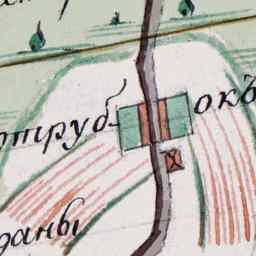 отрубокъ
даны